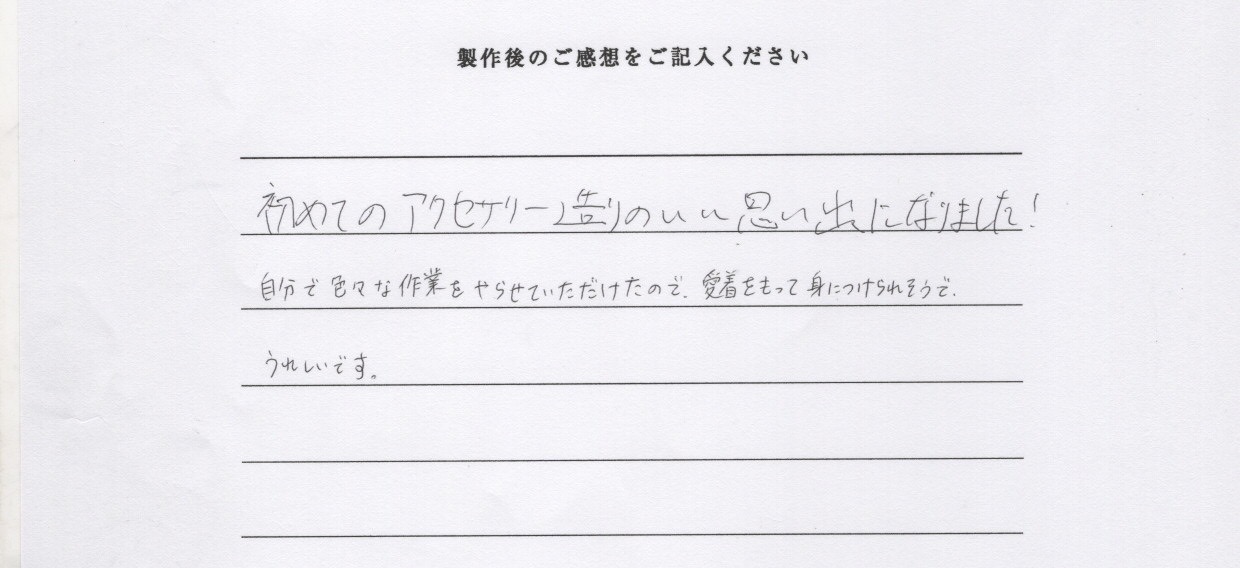 製作後のご感想をご記入ください
初めてのアクセサリー造りのいい思い出になりました!
自分で色々な作業をやらせていただけたので、愛着をもって身につけられそうで、
うれしいです。